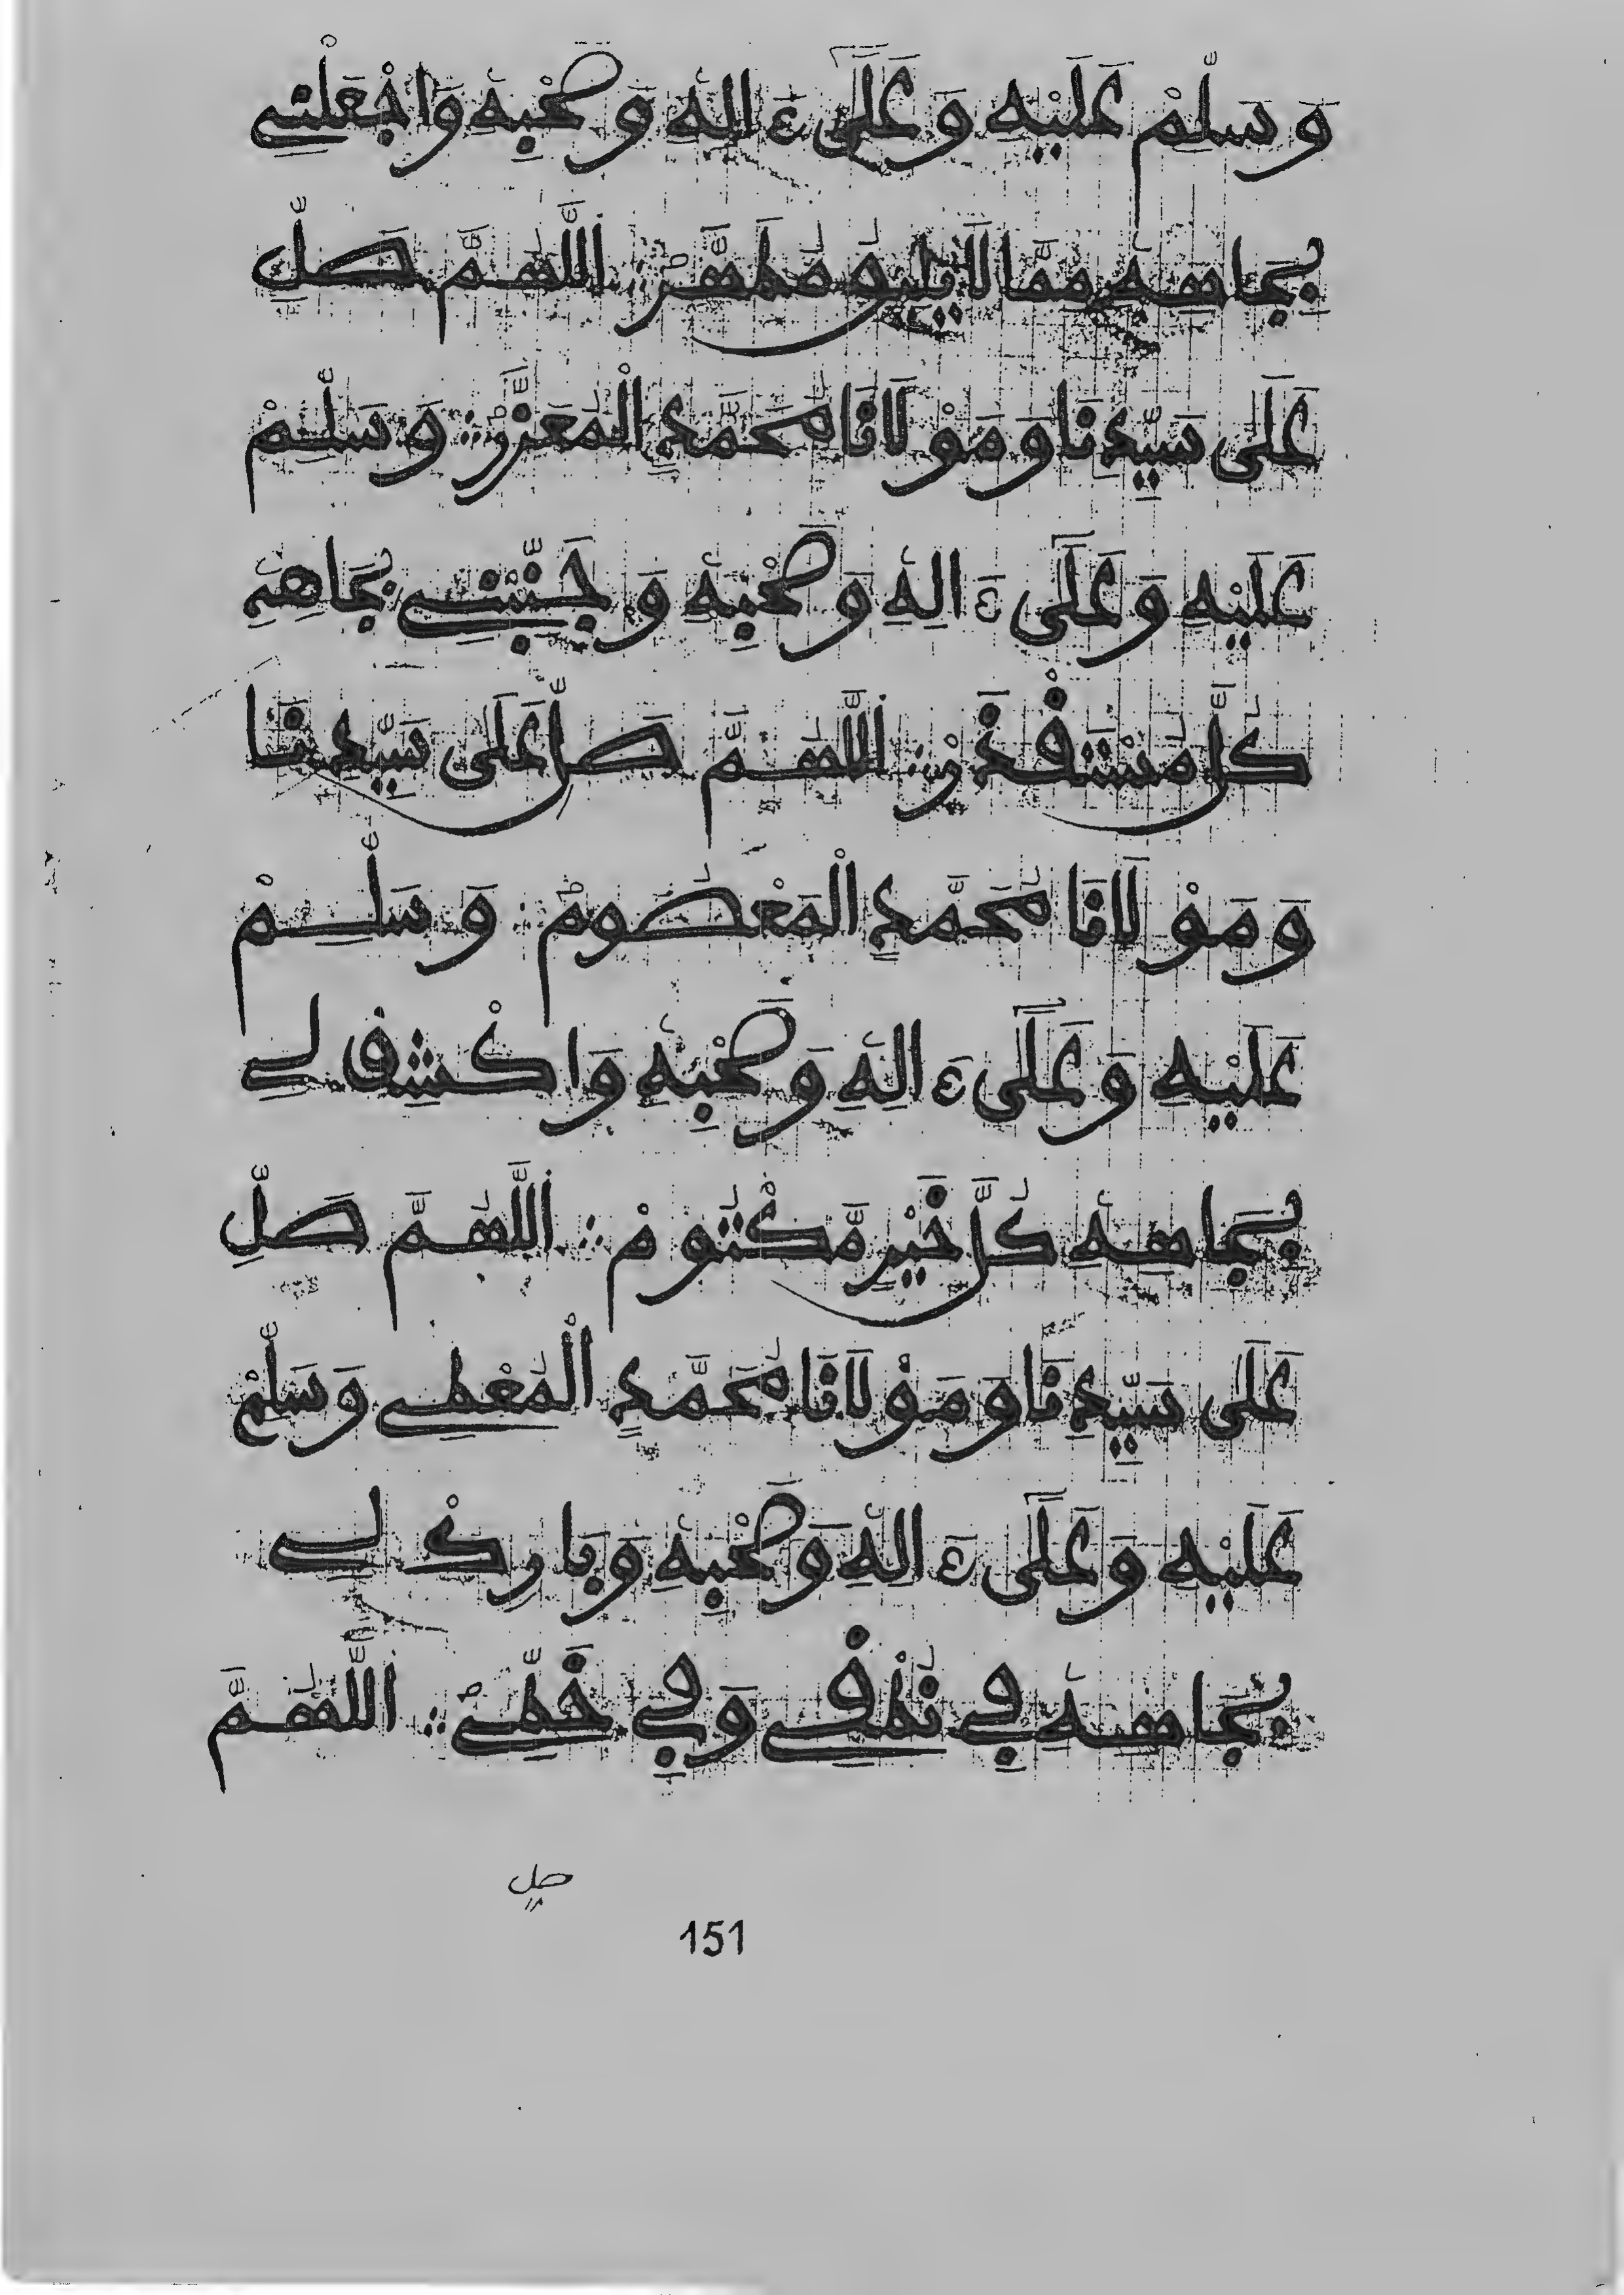 وَسَلِّمْ عَلَيْهِ وَعَلَىٰ ءَالِهِ وَصَحْبِهِ وَاجْعَلْنِے
بِجَاهِهِ مِمَّا لَا يَلِيقُ مُطَهَّرْ ∴ اللَّهُمَّ صَلِّ
عَلَى سَيِّدِنَا وَمَوْلَانَا مُحَمَّدٍ الْمُعَزَّزِ ∴ وَسَلِّمْ
عَلَيْهِ وَعَلَىٰ ءَالِهِ وَصَحْبِهِ وَجَنِّبْنِے بِجَاهِهِ
كُلَّ مُسْتَقْذَرْ ∴ اللَّهُمَّ صَلِّ عَلَى سَيِّدِنَا
وَمَوْلَانَا مُحَمَّدٍ الْمَعْصُومْ ∴ وَسَلِّمْ
عَلَيْهِ وَعَلَىٰ ءَالِهِ وَصَحْبِهِ وَاكْشِفْ لِے
بِجَاهِهِ كُلَّ خَيْرٍ مَّكْتُومْ ∴ اللَّهُمَّ صَلِّ
عَلَى سَيِّدِنَا وَمَوْلَانَا مُحَمَّدٍ الْمُعْطِے وَسَلِّمْ
عَلَيْهِ وَعَلَىٰ ءَالِهِ وَصَحْبِهِ وَبَارِكْ لِے
بِجَاهِهِ فِے نُطْقِے وَفِے خَطِّے ∴ اللَّهُمَّ
صل
151